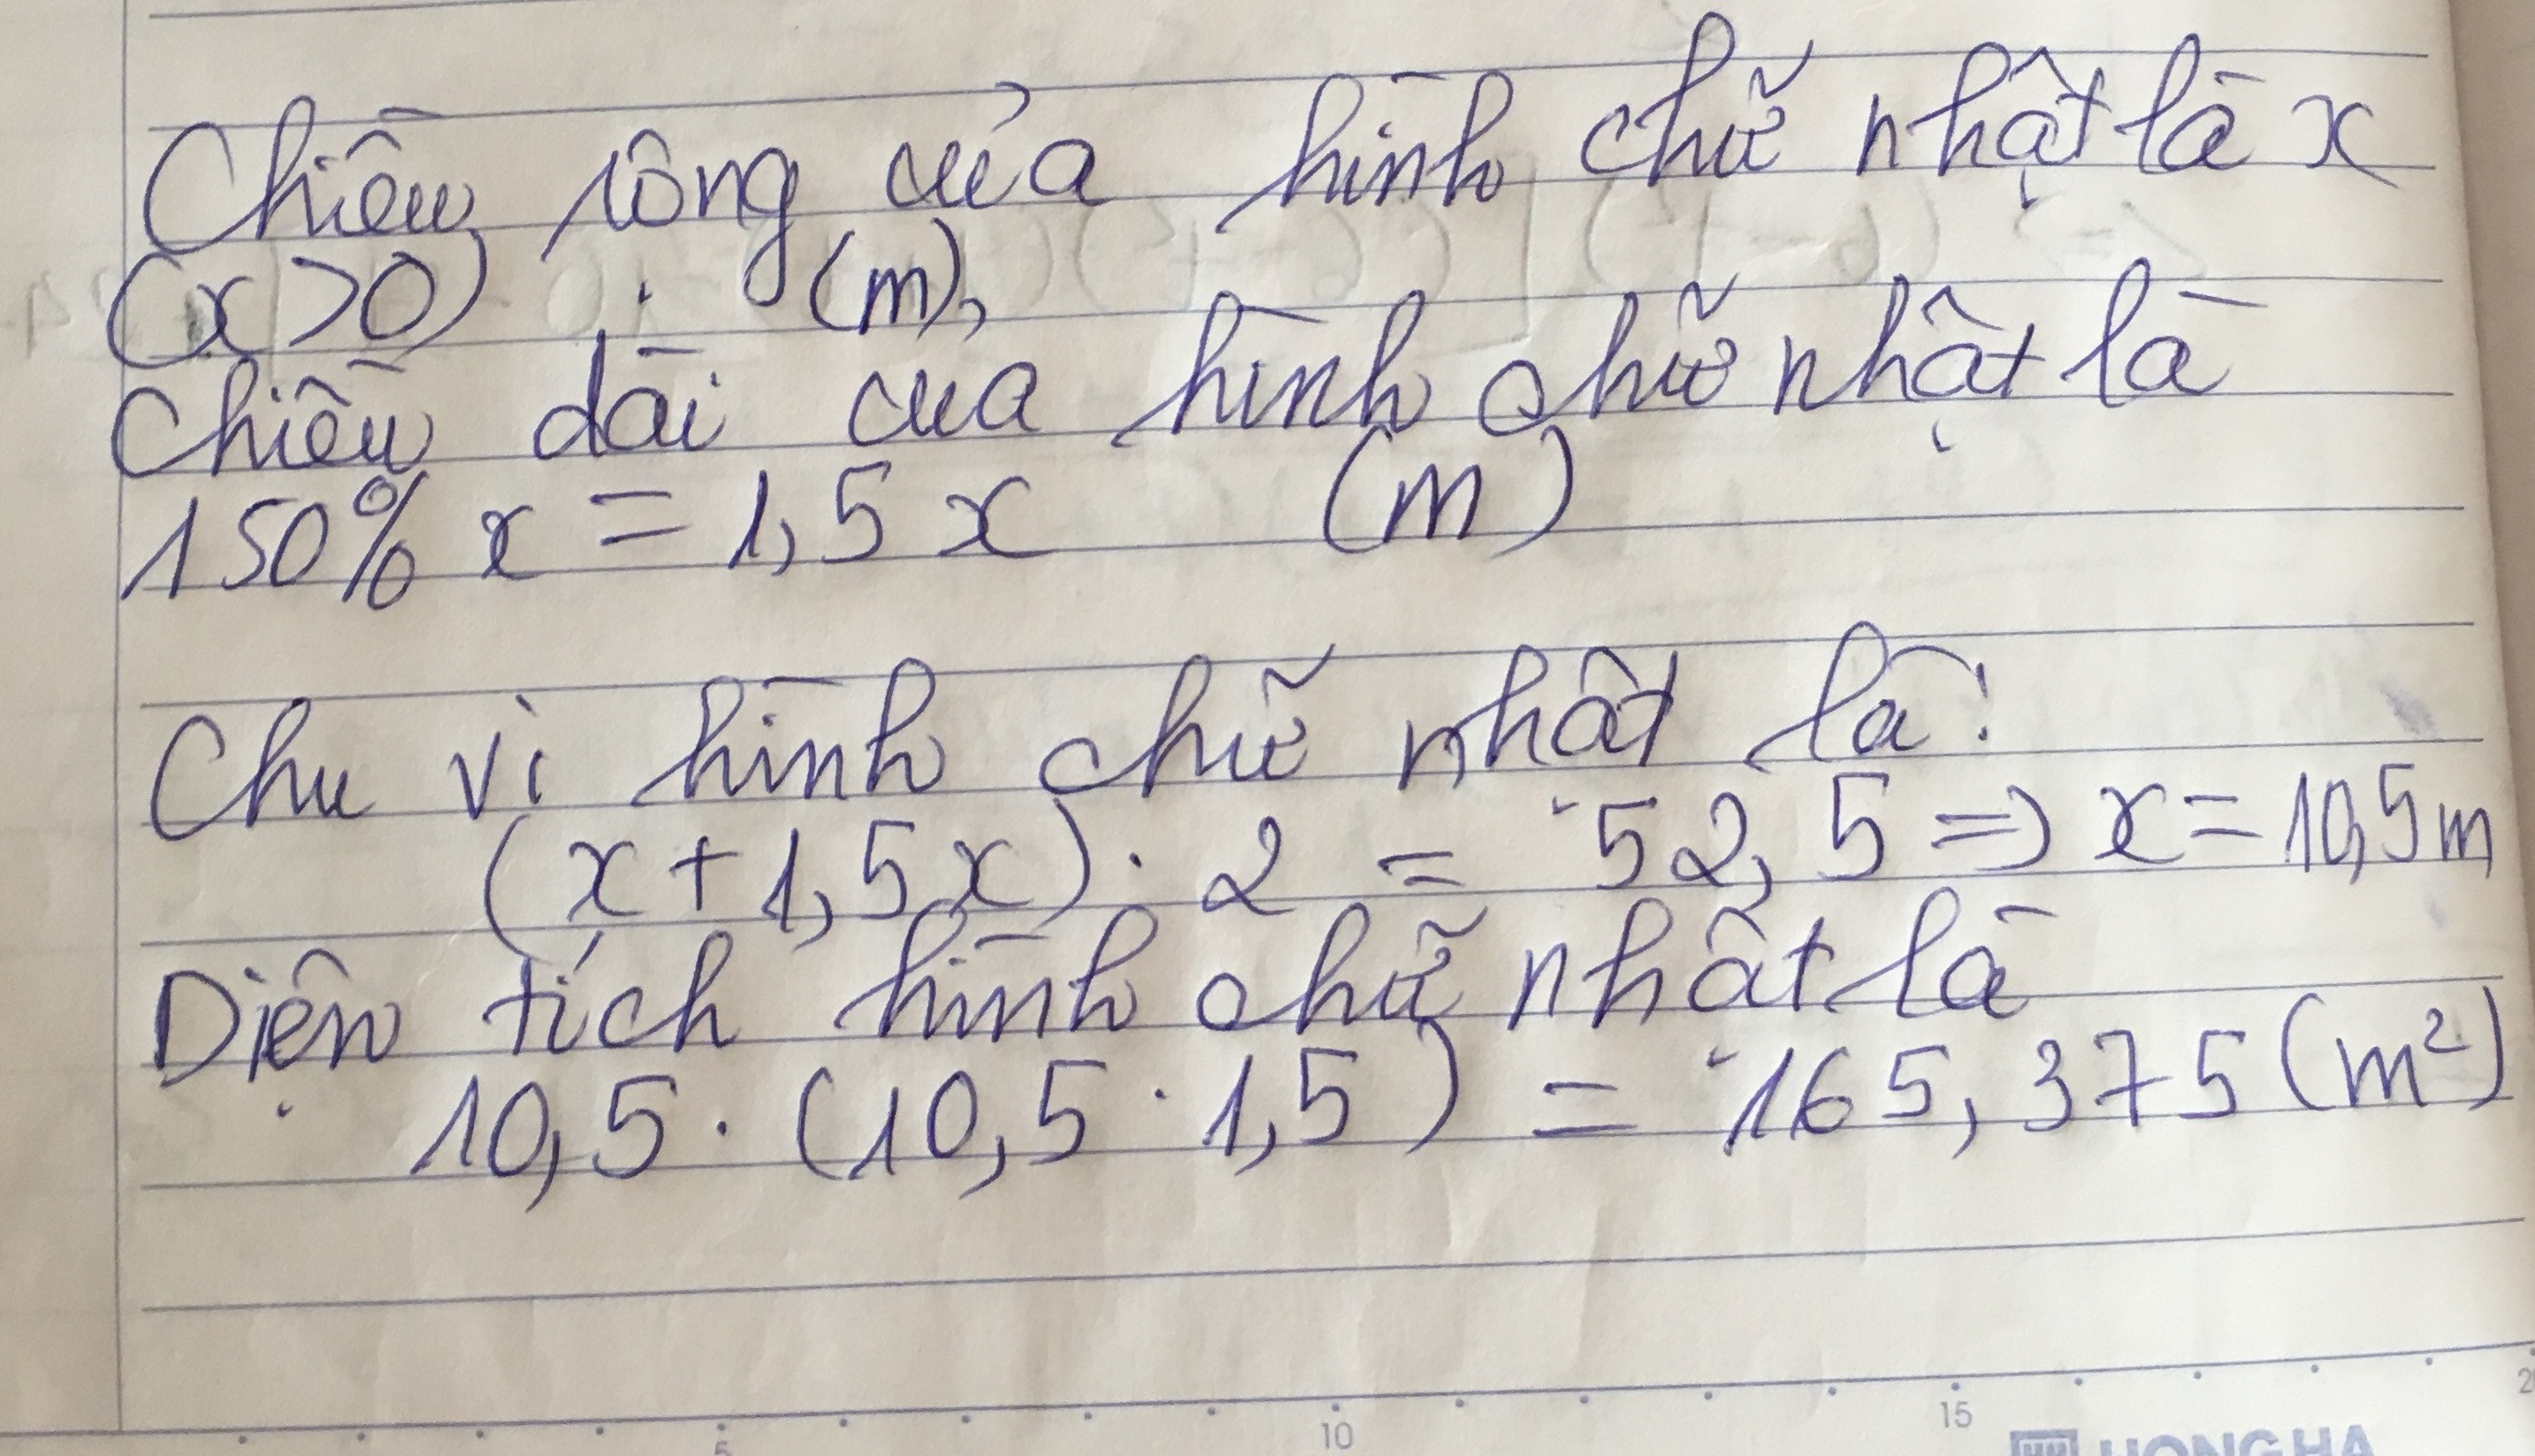 Chiều rộng của hình chữ nhật là x
(x>0) (m),
Chiều dài của hình chữ nhật là
150% x = 1,5 x (m)
Chu vi hình chữ nhật là:
(x+1,5x) . 2 = 52,5 => x = 10,5m
Diện tích hình chữ nhật là
10,5 . (10,5 . 1,5) = 165,375 (m²)
5 10 15 2
HONG HA